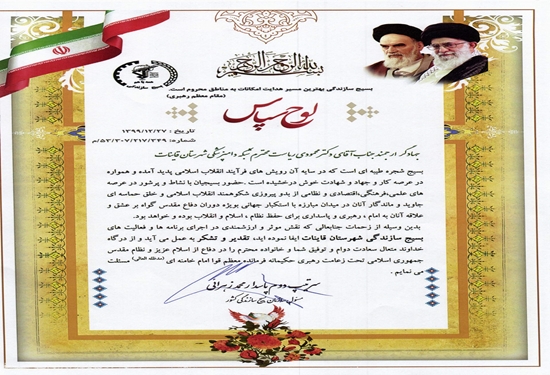 بسم الله الرحمن الرحیم
بسیج سازندگی بهترین مسیر هدایت امکانات به مناطق محروم است.
(مقام معظم رهبری)
لوح سپاس
تاریخ : ۱۳۹۹/۱۲/۲۷
شماره: ۵۳/۰۷/۲۱۷/۲۳۹/م
جهادگر ارجمند جناب آقای دکتر محمودی ریاست محترم شبکه دامپزشکی شهرستان قاینات
بسیج شجره طیبه ای است که در سایه آن رویش های فرآیند انقلاب اسلامی پدید آمده و همواره
در عرصه کار و جهاد و شهادت خوش درخشیده است. حضور بسیجیان با نشاط و پرشور در عرصه
های علمی،فرهنگی،اقتصادی و نظامی از بدو پیروزی شکوهمند انقلاب اسلامی و خلق حماسه ای
جاوید و ماندگار آنان در میدان مبارزه با استکبار جهانی بویژه دوران دفاع مقدس گواه بر عشق و
علاقه آنان به امام ، رهبری و پاسداری برای حفظ نظام ، اسلام و انقلاب بوده و خواهد بود.
بدین وسیله از زحمات جنابعالی که نقش موثر و ارزشمندی در اجرای برنامه ها و فعالیت های
بسیج سازندگی شهرستان قاینات ایفا نموده اید، تقدیر و تشکر به عمل می آید و از درگاه
خداوند متعال سعادت دوام و توفیق شما و خانواده محترم را در دفاع از اسلام عزیز و نظام مقدس
جمهوری اسلامی تحت زعامت رهبری حکیمانه فرمانده معظم قوا امام خامنه ای (مدظله العالی) مسئلت
می نمایم .
سرتیپ دوم پاسدار محمد زهرائی
مسئول سازمان بسیج سازندگی کشور